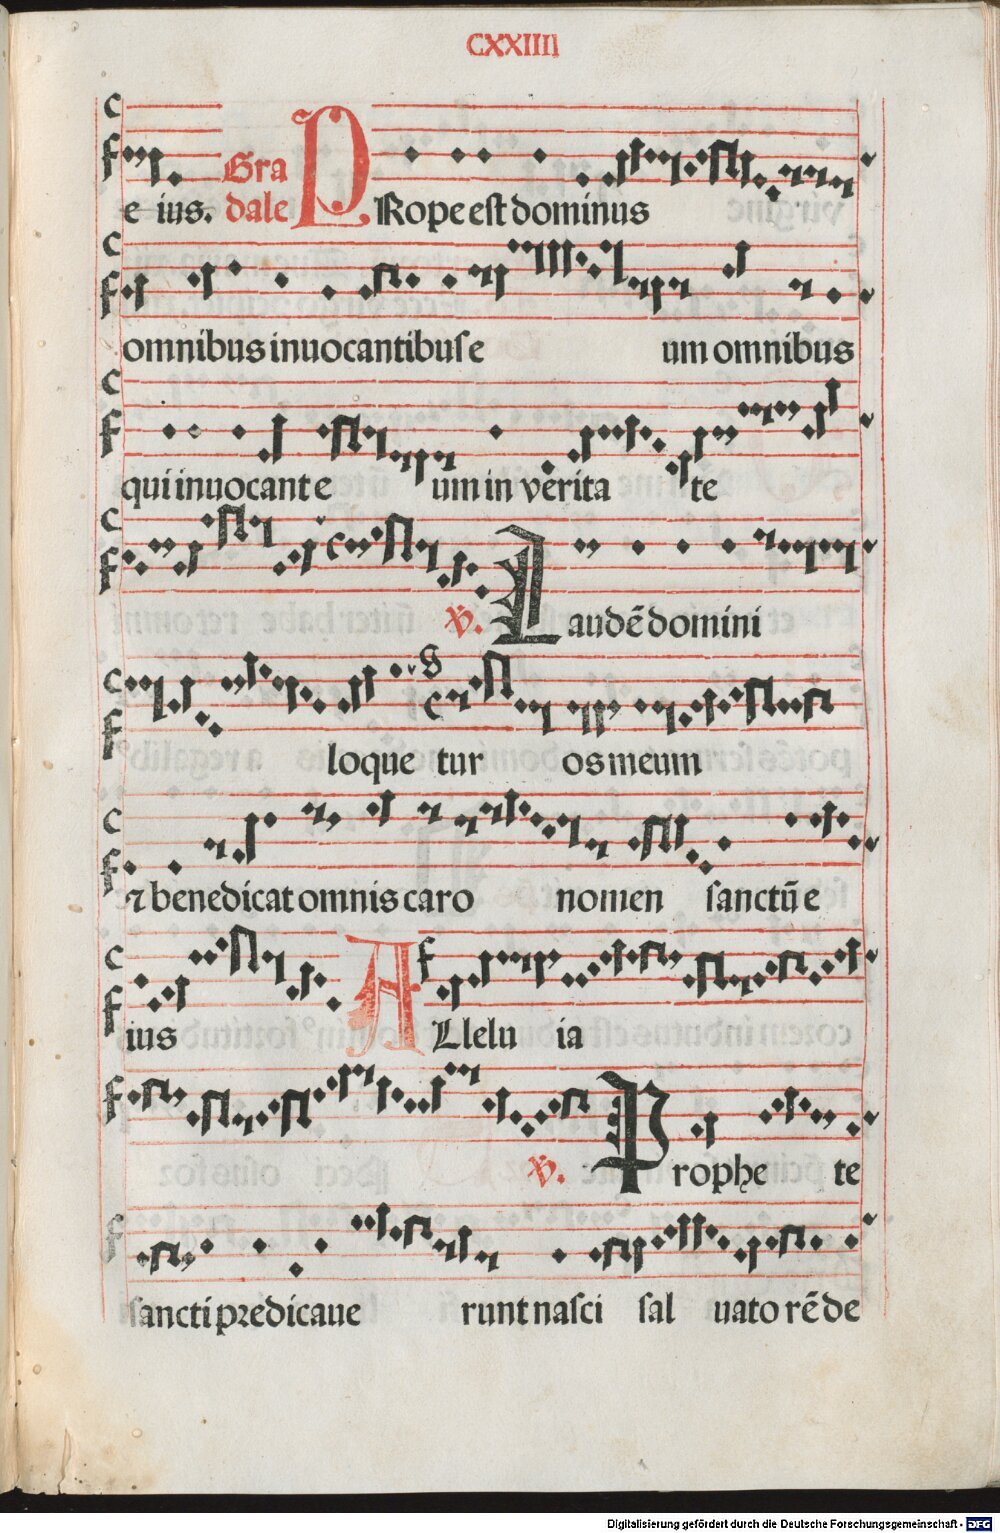 CXXIIII
e ius. Gradale PRope est dominus
omnibus inuocantibus e um omnibus
qui inuocant e um in verita te
℣. Laudē domini
loque tur os meum
⁊ benedicat omnis caro nomen sanctū e
ius ALlelu ia
℣. Prophe te
sancti predicaue runt nasci sal uato rē de
Digitalisierung gefördert durch die Deutsche Forschungsgemeinschaft - DFG